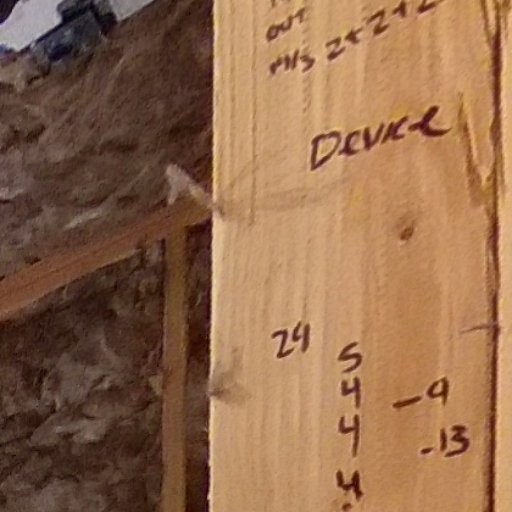 OUT
2+2+2
Device
24
5
4 -9
4 -13
4